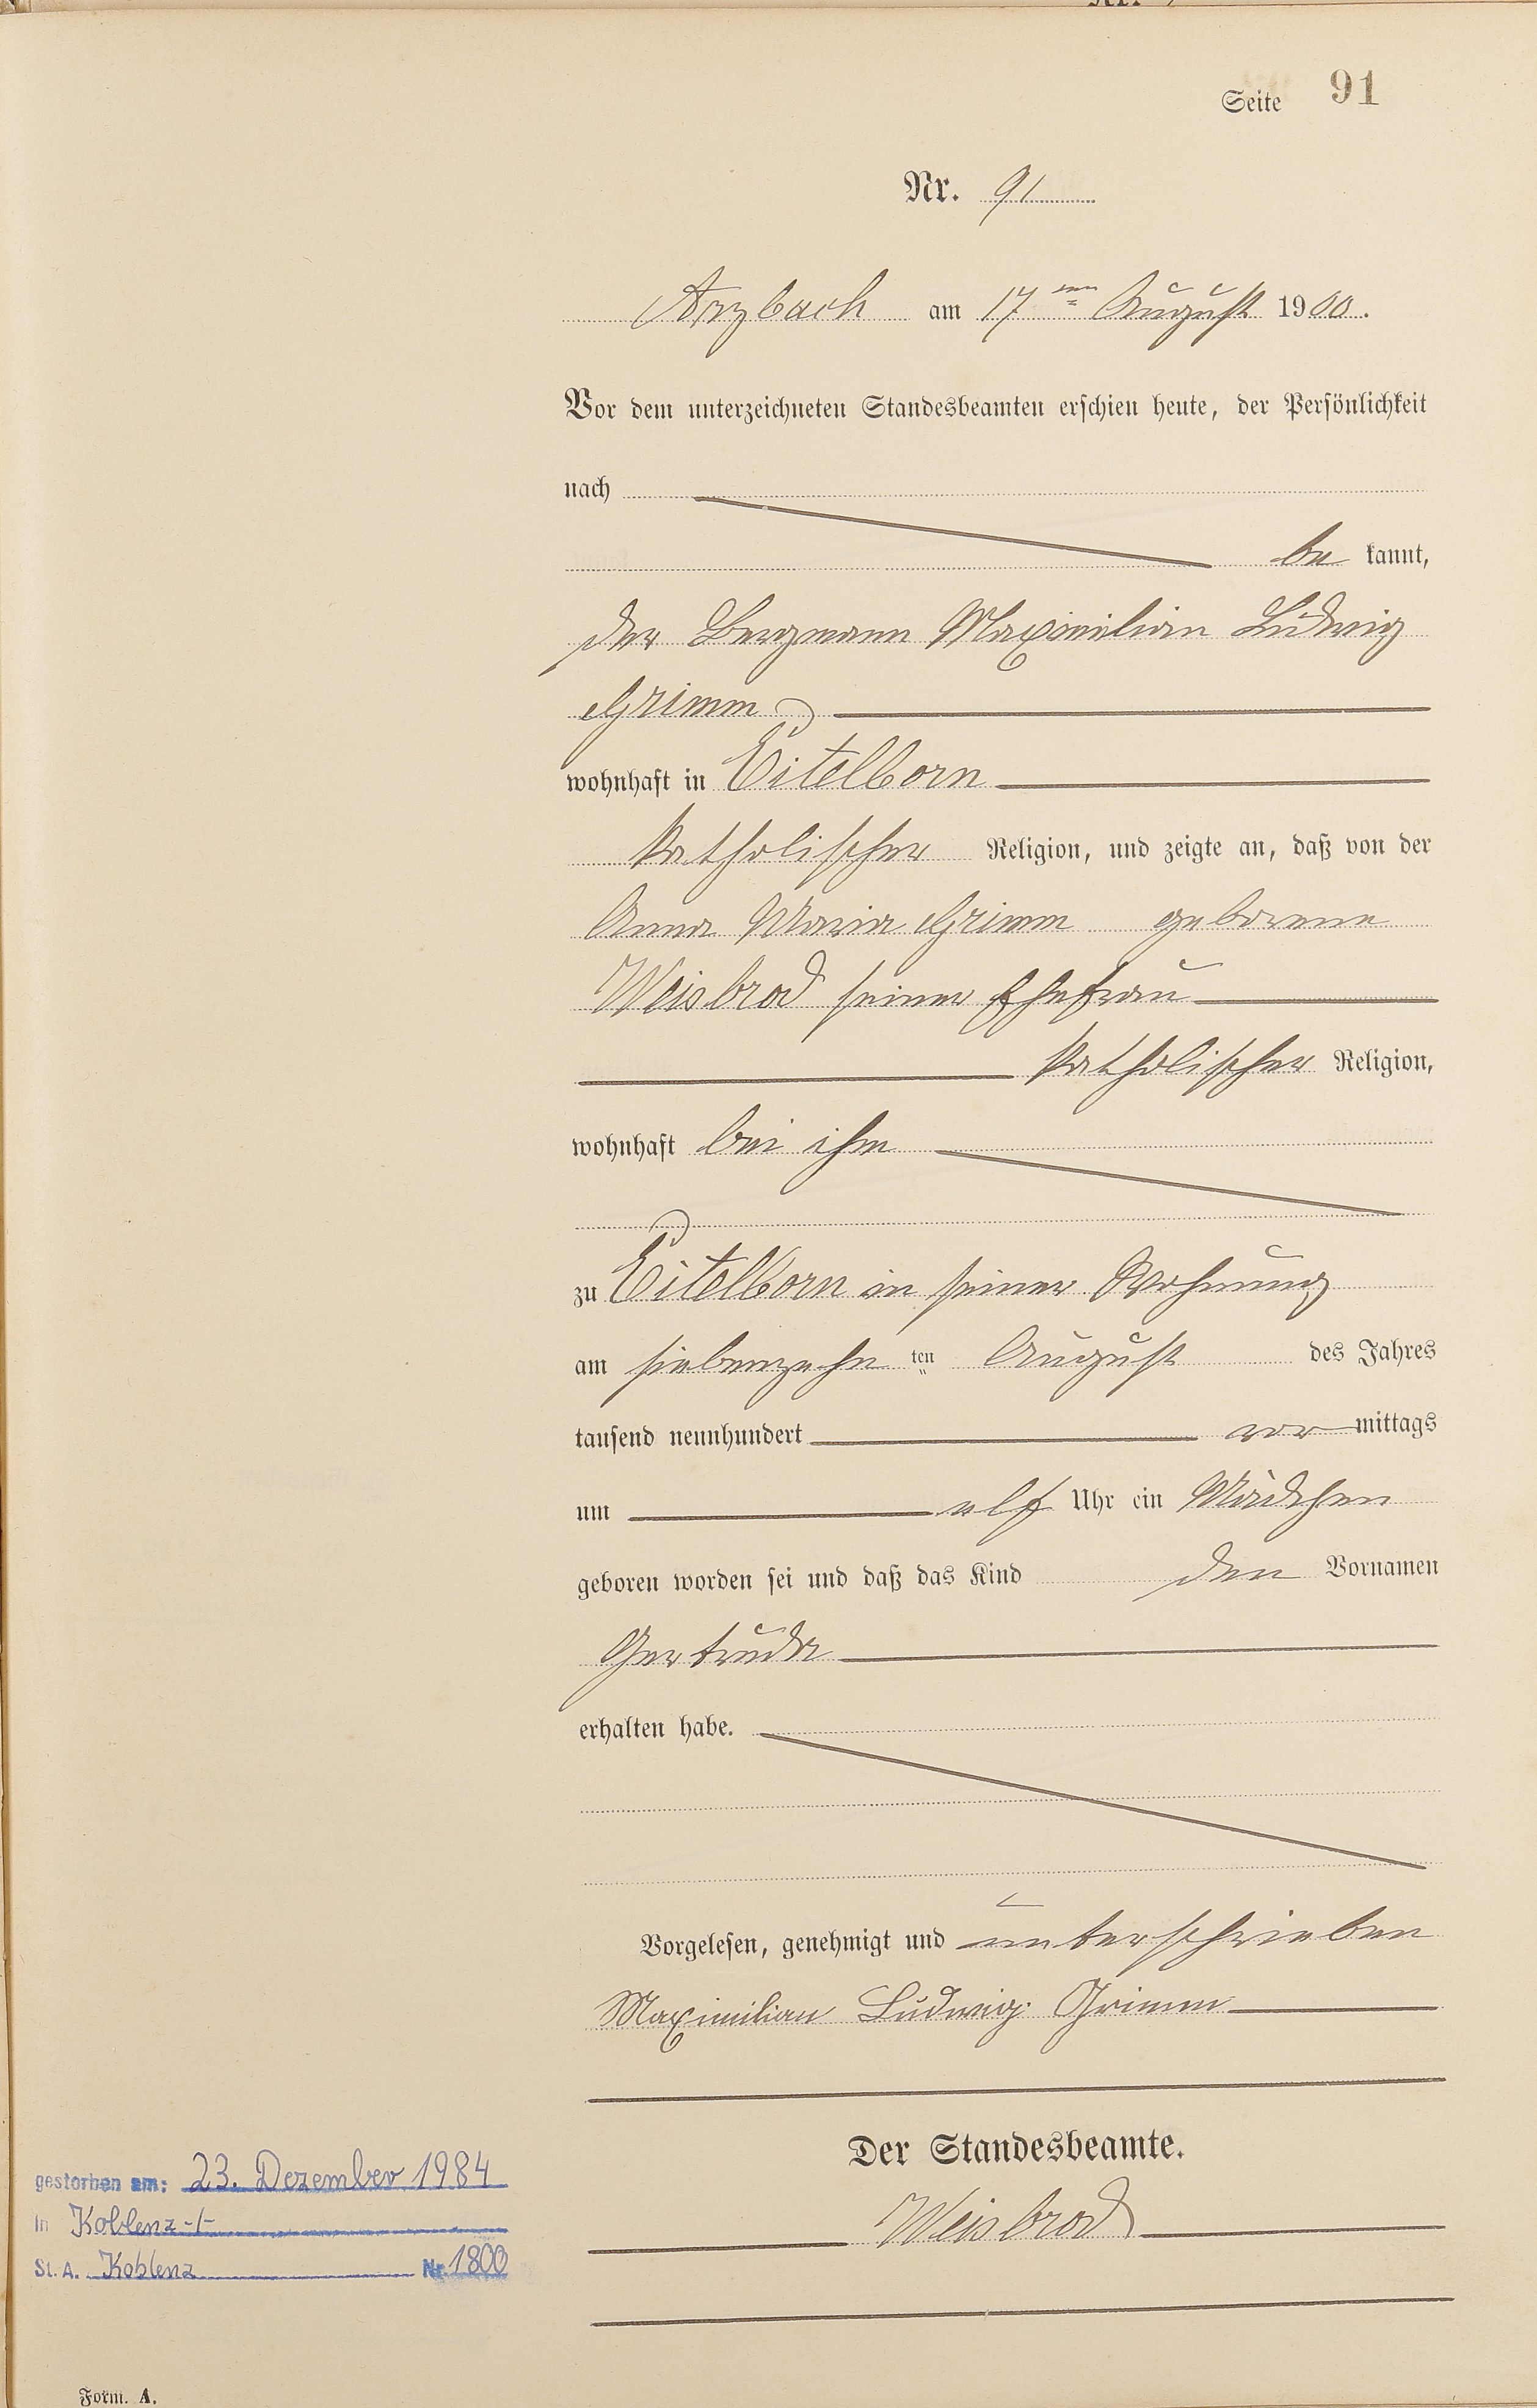 Seite 91
Nr. 91
Arzbach am 17ten August 1900.
Vor dem unterzeichneten Standesbeamten erschien heute, der Persönlichkeit
nach
be kannt,
der Bergmann Maximilian Ludwig
Grimm
wohnhaft in Eitelborn
katholischer Religion, und zeigte an, daß von der
Anna Maria Grimm geborene
Weisbrod seiner Ehefrau
katholischer Religion,
wohnhaft bei ihm
zu Eitelborn in seiner Wohnung
am siebenzehn ten August des Jahres
tausend neunhundert vor mittags
um elf Uhr ein Mädchen
geboren worden sei und daß das Kind den Vornamen
Gertruda
erhalten habe.
Vorgelesen, genehmigt und unterschrieben
Maximilian Ludwig Grimm
Der Standesbeamte.
Weisbrod
gestorben am: 23. Dezember 1984
in Koblenz
St. A. Koblenz Nr. 1800
Form. A.